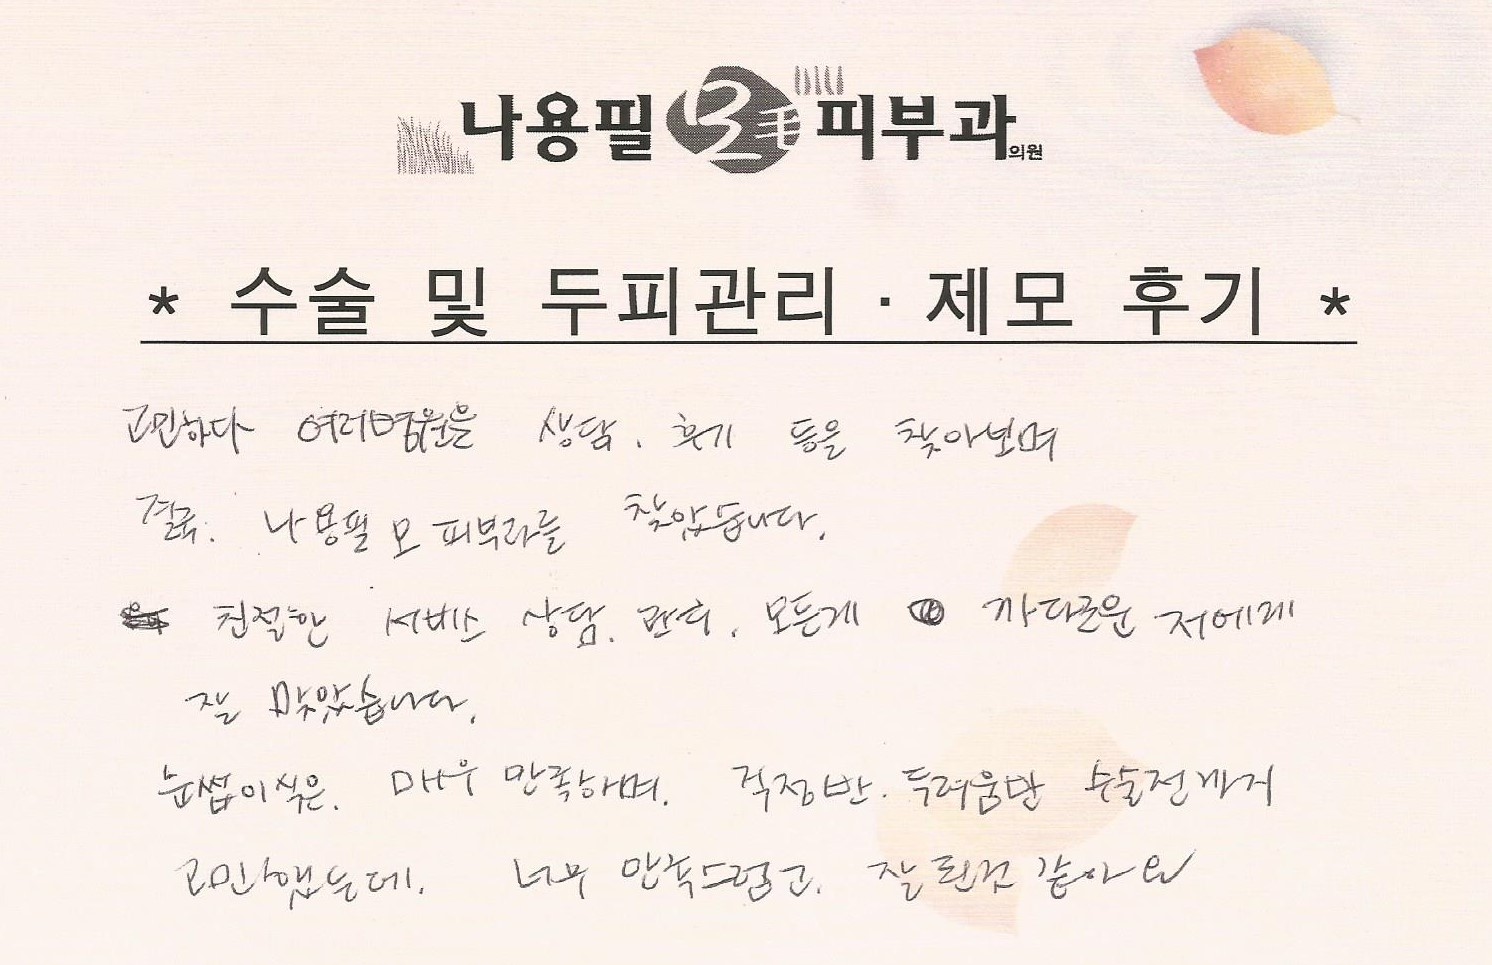 나용필 모毛 피부과의원
* 수술 및 두피관리 · 제모 후기 *
고민하다 여러병원을 상담, 후기 등을 찾아보며
결국. 나용필 모 피부과를 찾았습니다.
친절한 서비스 상담, 관리, 모든게 까다로운 저에게
잘 맞았습니다.
눈썹이식은. 매우 만족하며. 걱정반. 두려움반 수술전까지
고민했는데. 너무 만족스럽고. 잘 된것 같아요